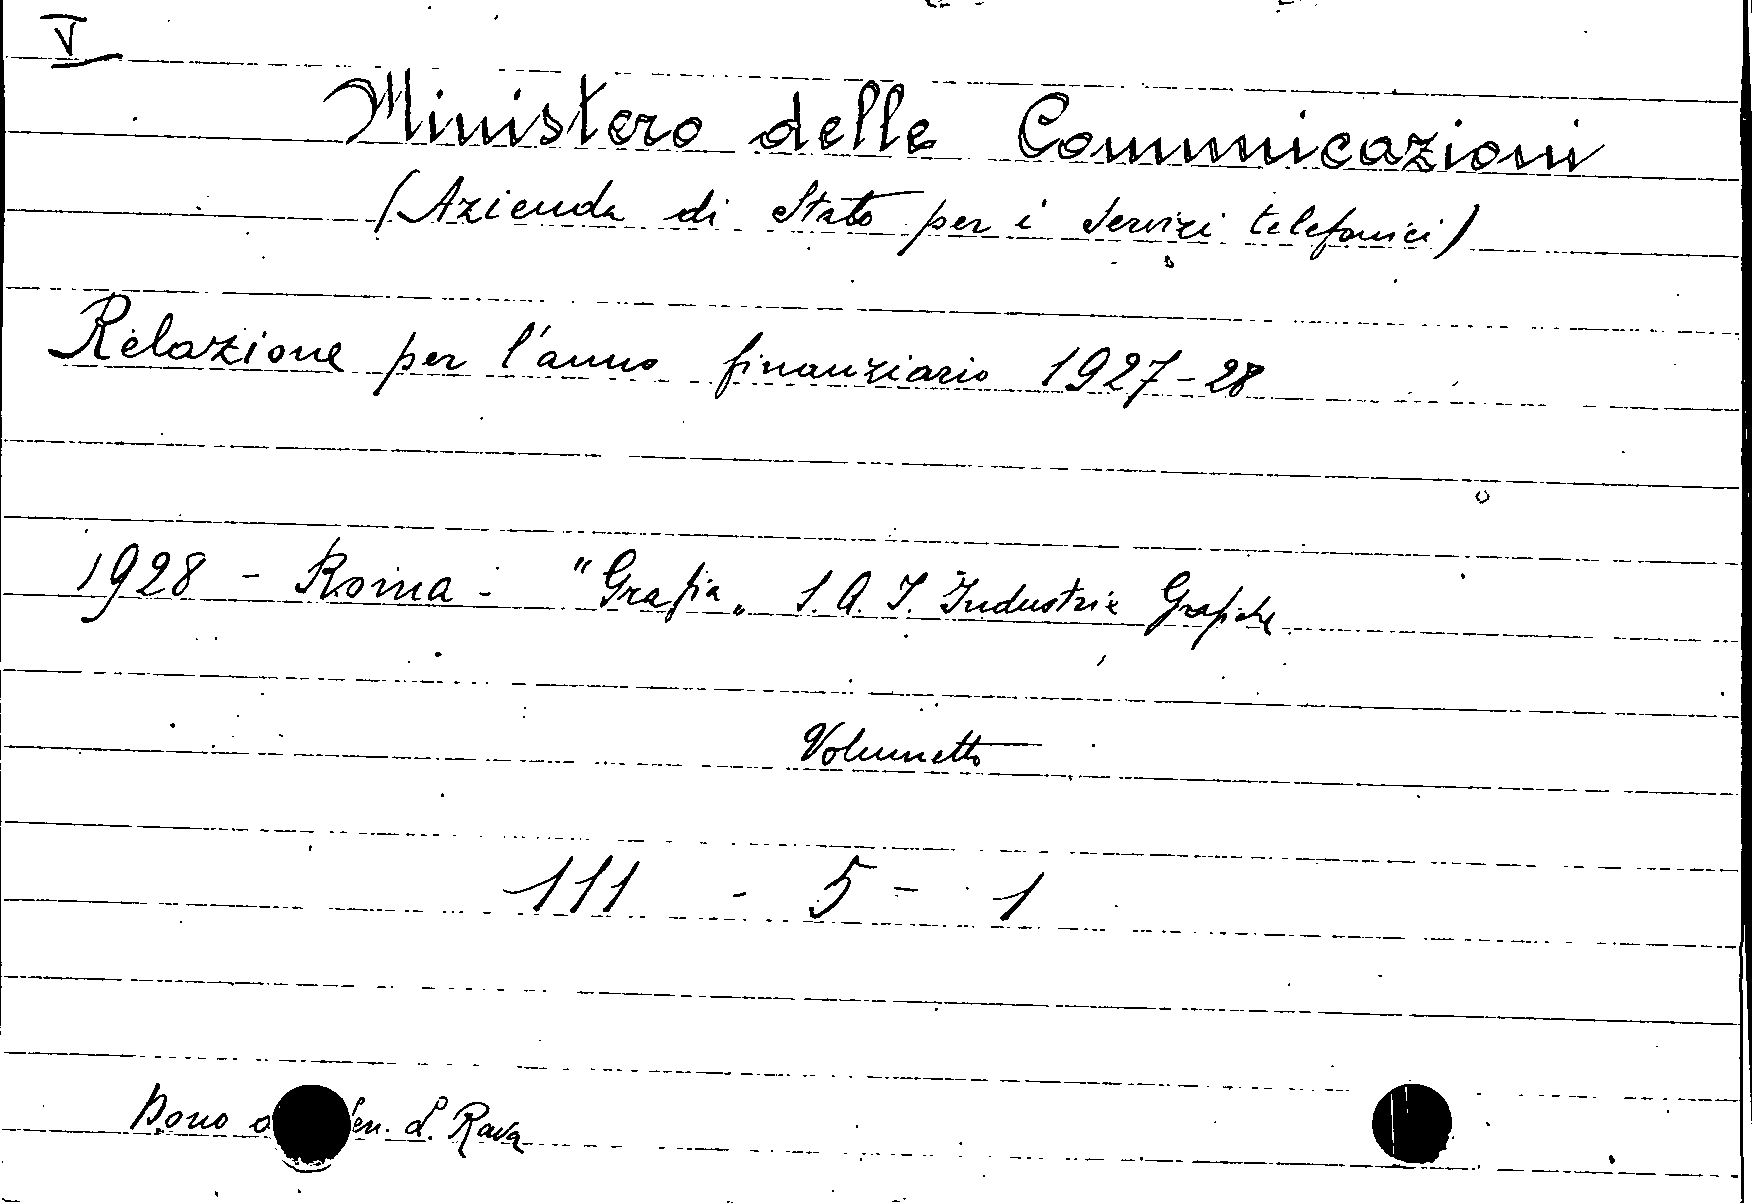 V
Ministero delle Comunicazioni
(Azienda di Stato per i Servizi telefonici)
Relazione per l'anno finanziario 1927-28
1928 - Roma - "Grafia" S. A. I. Industrie Grafiche
Volumetto
111 - 5 - 1
Dono L. Rava